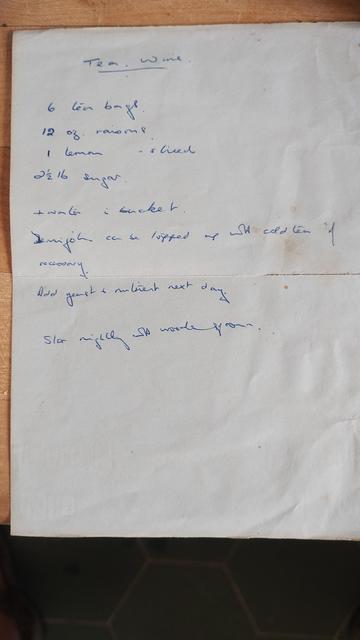 Tea Wine.
6 tea bags.
12 oz. raisins.
1 lemon - sliced
2½ lb sugar.
+ water in bucket.
Demijohn can be topped up with cold tea if
necessary.
Add yeast + nutrient next day.
Stir nightly with wooden spoon.